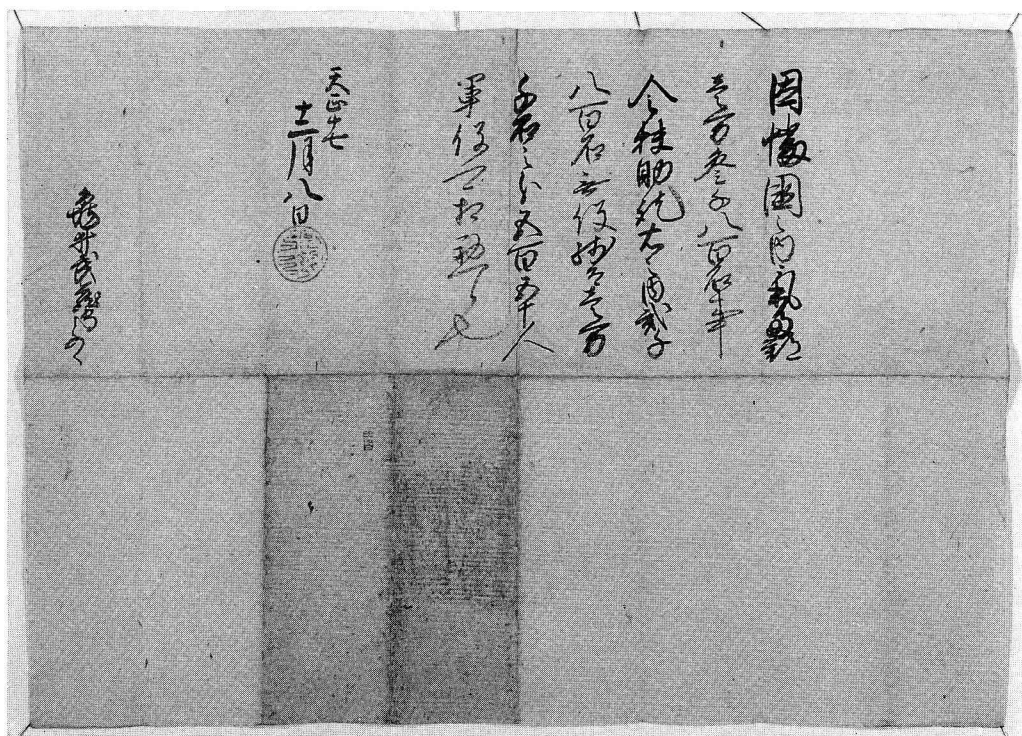 因幡国之内気多郡
壱万参千八百石事
令扶助訖右之内弐千
八百石無役残壱万
千石之分五百五十人
軍役可相勤候也
天正十七
十二月八日
亀井武蔵守とのへ